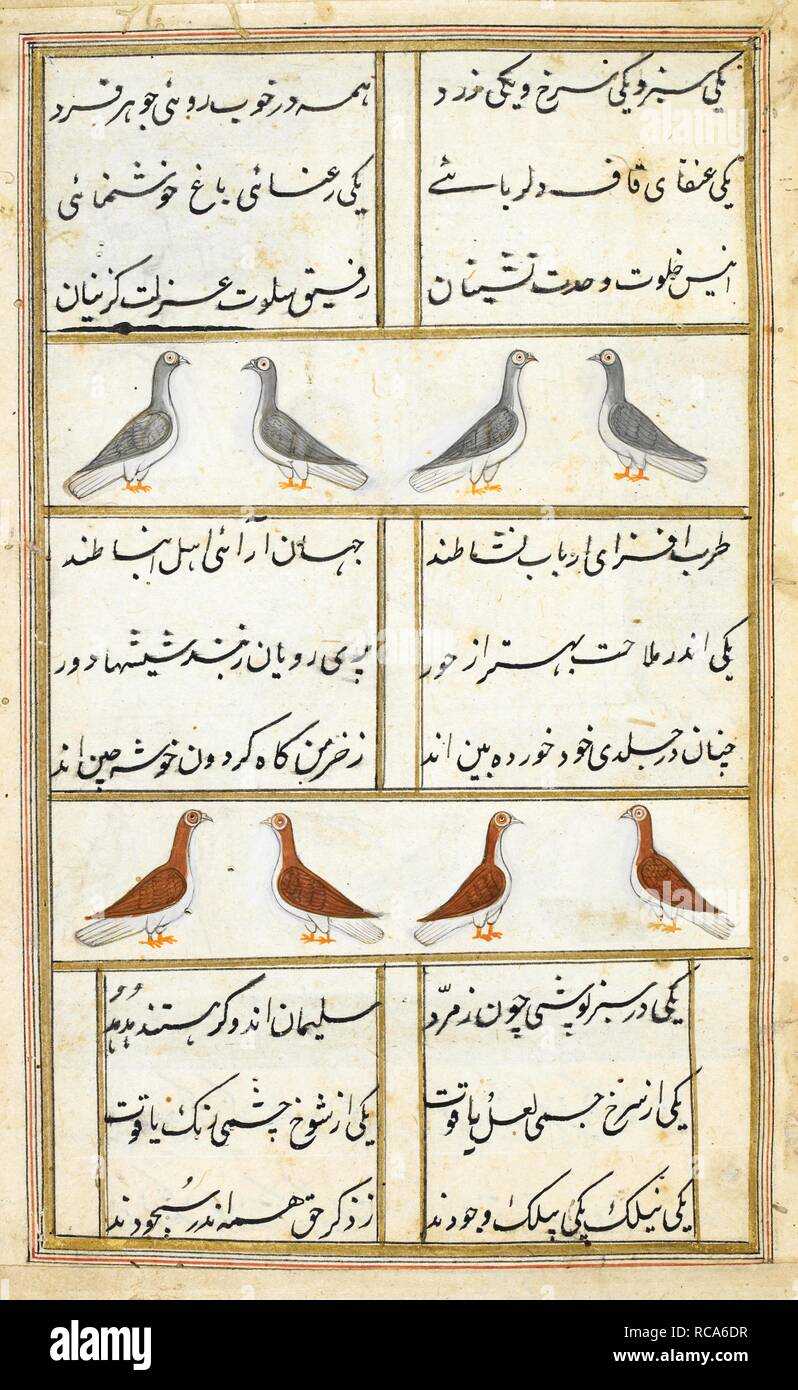 یکی سبز و یکی سرخ و یکی زرد
همه در خوب روئی جوهر فرد
یکی عنقای قاف دلربائے
یکی رعنائی باغ خوشنمائی
انیس خلوت وحدت نشینان
رفیق سلوت عزلت کزینان
طرب افزای ارباب نشاطند
جهان آرائی اهل انبساطند
یکی اندر ملاحت بهتر از حور
پری رویان زبند شیشها دور
چنان در جلدی خود خورده بین اند
زخرمن کاه کردون خوشه چین اند
یکی در سبز پوشی چون زمرّد
سلیمان اند و کر هستند هُدهُد
یکی از سرخ جسمی لعل یاقوت
یکی از شوخ چشمی رنک یاقوت
یکی نیلک یکی پیلک وجودند
ز ذکر حق همه اندر سُجودند
alamy
alamy
Image ID: RCA6DR
www.alamy.com